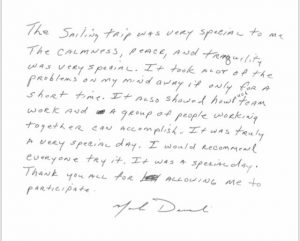 The Sailing trip was very special to me
The calmness, peace, and tranquility
was very special. It took alot of the
problems on my mind away if only for a
short time. It also showed how team
work and a group of people working
together can accomplish. It was truly
a very special day. I would recommend
everyone try it. It was a special day.
Thank you all for allowing me to
participate.